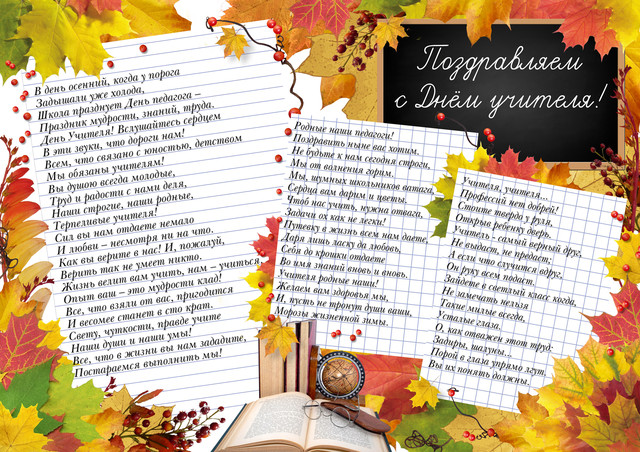 Поздравляем
с Днём учителя!
В день осенний, когда у порога
Задышали уже холода,
Школа празднует День педагога –
Праздник мудрости, знаний, труда.
День Учителя! Вслушайтесь сердцем
В эти звуки, что дороги нам!
Всем, что связано с юностью, детством
Мы обязаны учителям!
Вы душою всегда молодые,
Труд и радости с нами деля,
Наши строгие, наши родные,
Терпеливые учителя!
Сил вы нам отдаете немало
И любви – несмотря ни на что.
Как вы верите в нас! И, пожалуй,
Верить так не умеет никто.
Жизнь велит вам учить, нам – учиться,
Опыт ваш – это мудрости клад!
Все, что взяли от вас, пригодится
И весомее станет в сто крат.
Свету, чуткости, правде учите
Наши души и наши умы!
Все, что в жизни вы нам зададите,
Постараемся выполнить мы!
Родные наши педагоги!
Поздравить ныне вас хотим.
Не будьте к нам сегодня строги,
Мы от волнения горим.
Мы, шумных школьников ватага,
Сердца вам дарим и цветы.
Чтоб нас учить, нужна отвага,
Задачи ох как не легки!
Путевку в жизнь всем нам даете,
Даря лишь ласку да любовь,
Себя до крошки отдаете
Во имя знаний вновь и вновь.
Учителя родные наши!
Желаем вам здоровья мы,
И, пусть не тронут души ваши,
Морозы жизненной зимы.
Учителя, учителя...
Профессий нет добрей!
Стоите твердо у руля,
Открыв ребенку дверь.
Учитель - самый верный друг,
Не выдаст, не предаст;
А если что случится вдруг,
Он руку всем подаст.
Зайдете в светлый класс когда,
Не замечать нельзя
Такие милые всегда,
Усталые глаза.
О, как отважен этот труд:
Задиры, шалуны...
Порой в глаза упрямо лгут,
Вы их понять должны.